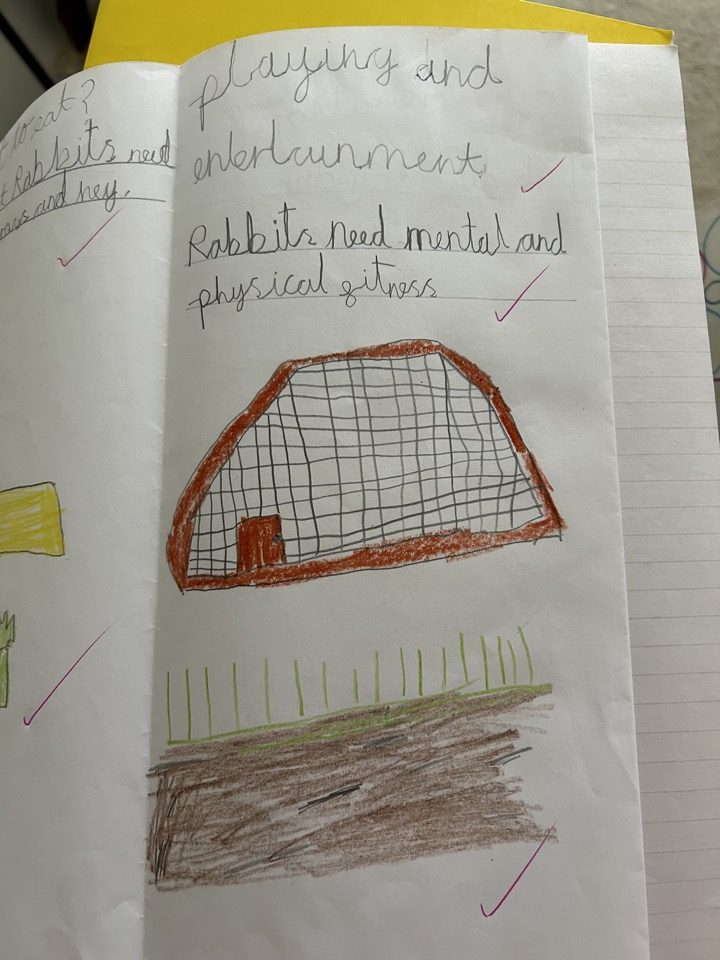 to eat?
Rabbits need
and hey.
playing and
entertainment
Rabbits need mental and
physical fitness